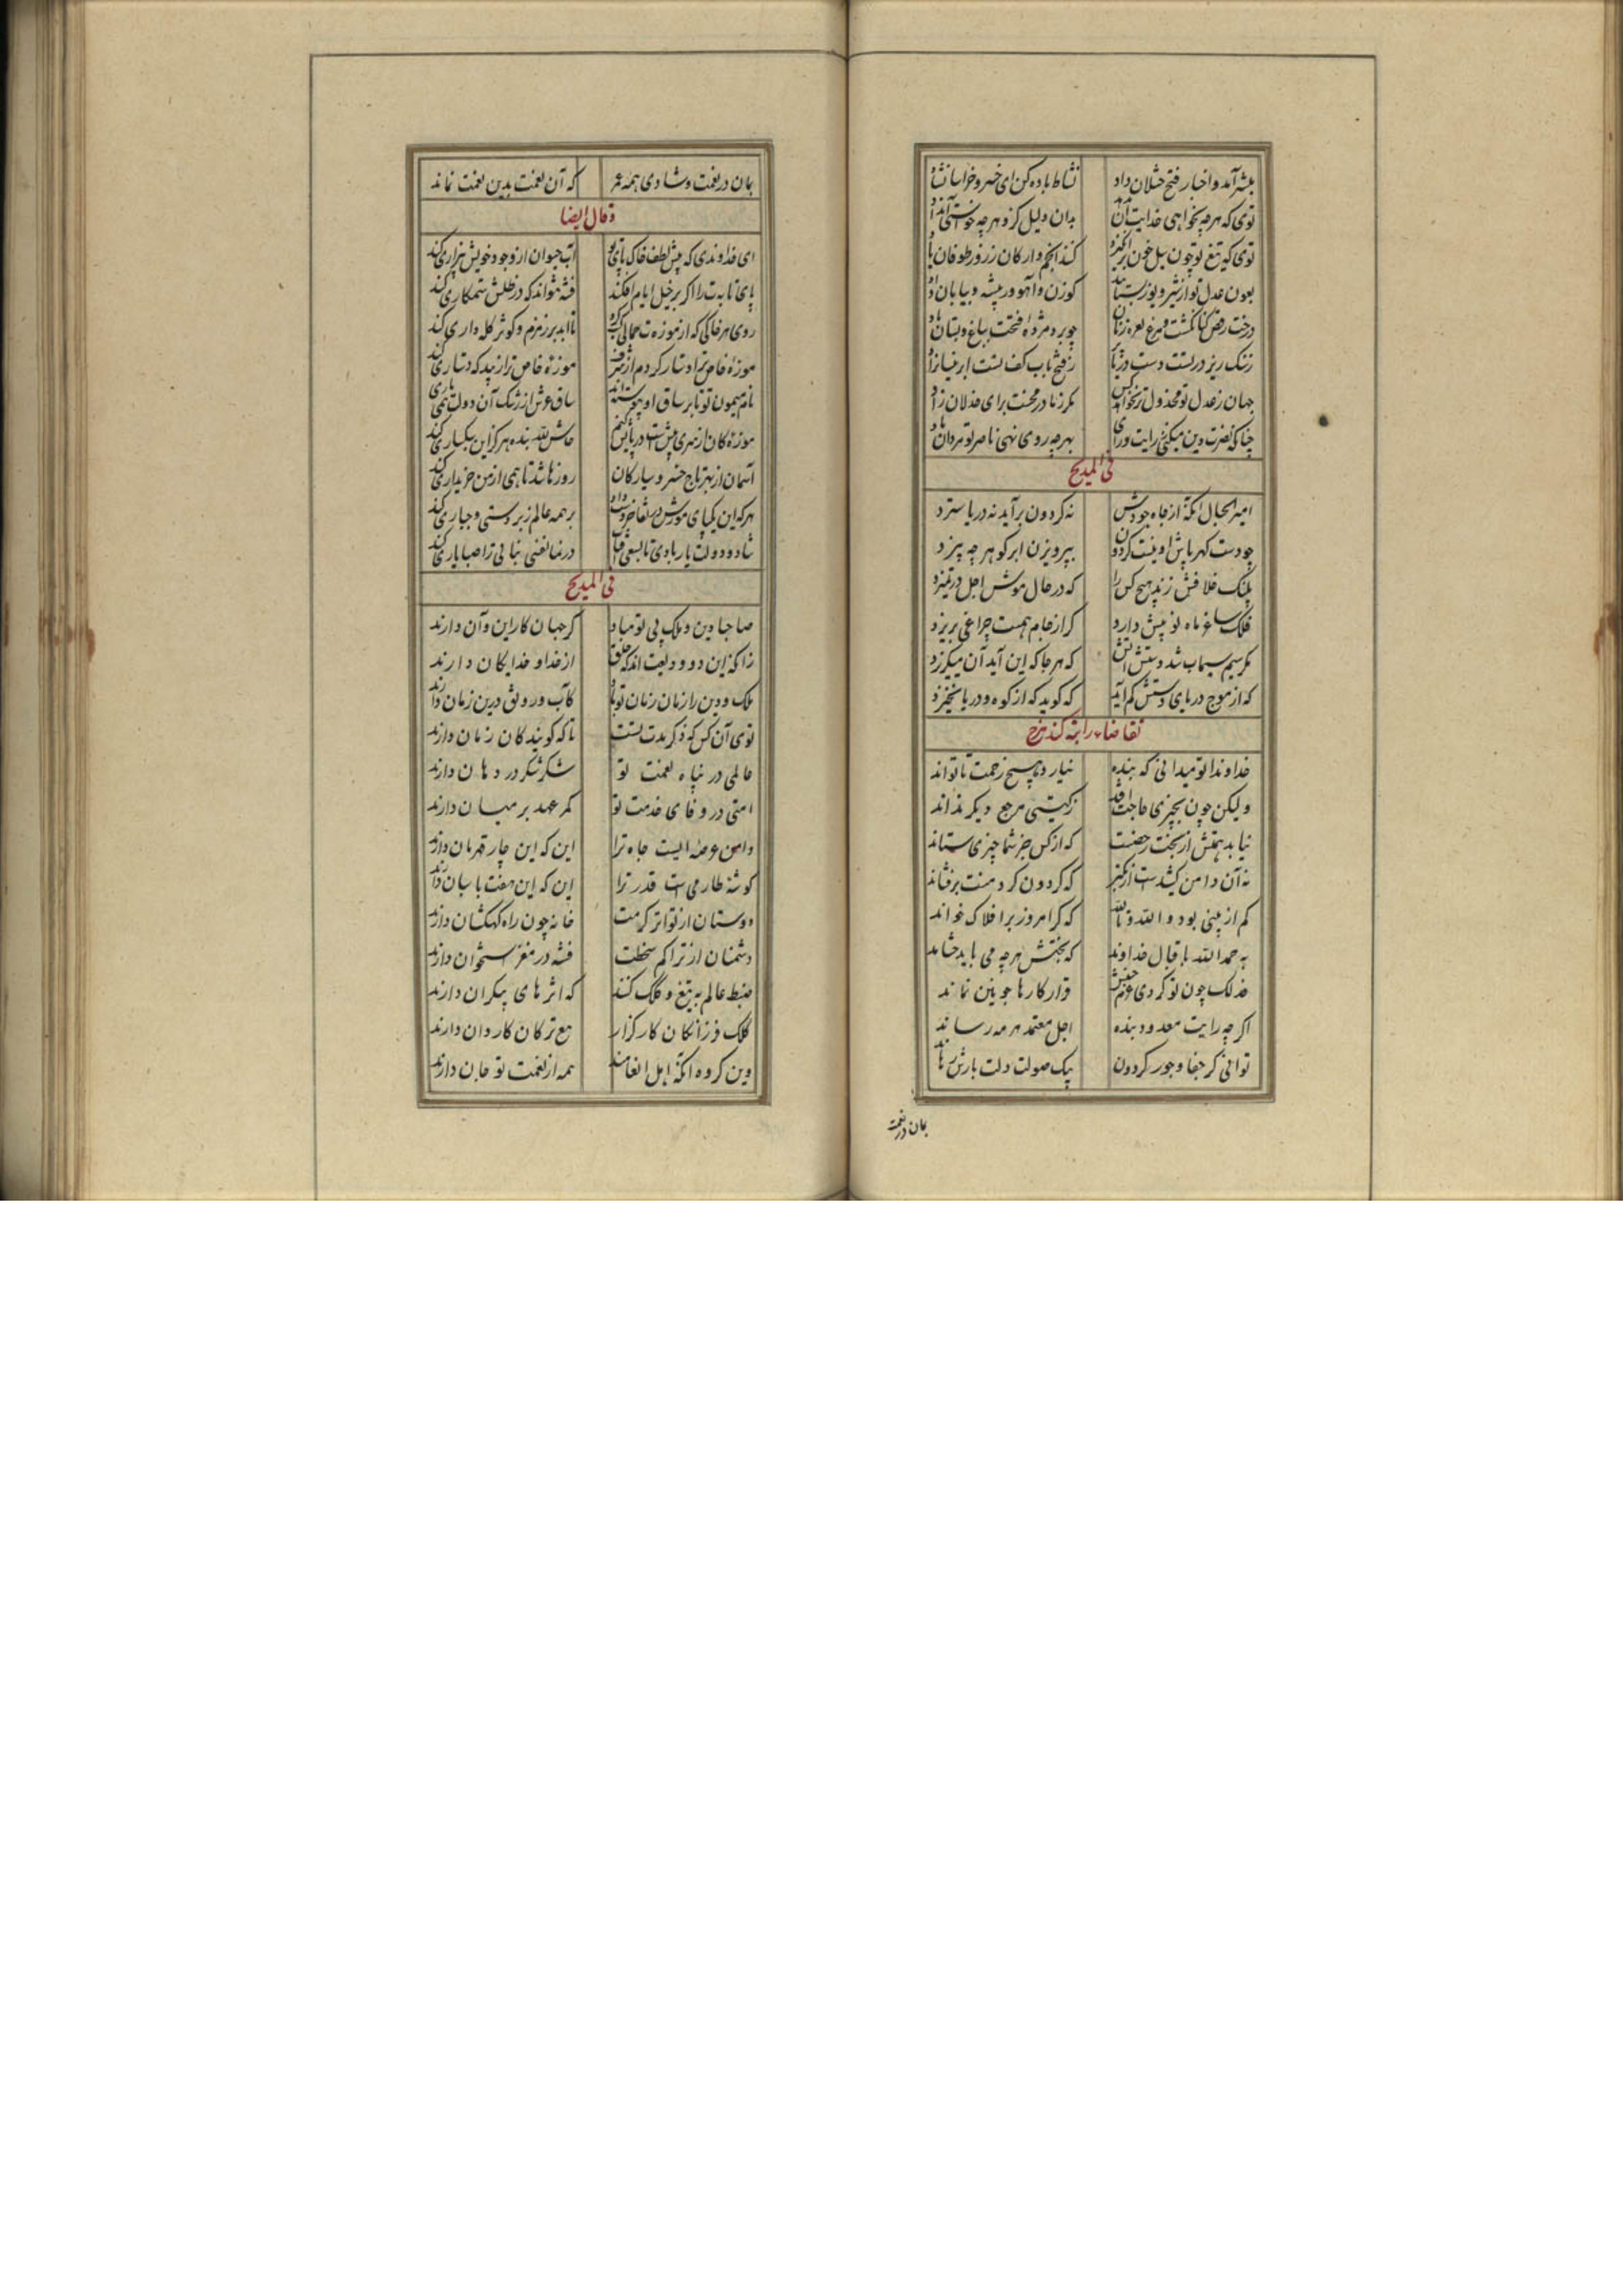 مبشر آمد و اخبار فتح ختلان داد نشاط باده کن ای خسرو خراسان شاد
توی که هرچه بخواهی خدایت آن بدهد بدان دلیل کزو هرچه خواستی آن داد
توی که تیغ تو چون سیل خون برانگیزد کند انجم و ارکان ز روز طوفان یاد
بعون عدل تو از شیر و یوز بستانند کوزن و آهو در بیشه و بیابان داد
درخت رقص کنان گشت و مرغ نعره زنان چو برد مژدهٔ فتحت بباغ و بستان باد
جهان ز عدل تو مخذول تر نخواهد کس مگر نزاد در محنت برای خذلان زاد
چنانکه نصرت دین میکنی برایت و رای بهرچه روی نهی ناصر تو یزدان باد
فی المدیح
امیر الجبال انکه از جاه و جودش نه کردون برآید نه دریا ستیزد
چو دست کهر پاش او نیست کردون بپرویزن ابر کوهر چه بیزد
پلنک خلافش نزد هیچ کس را که در حال موش اجل در نمیزد
فلک ساغر ماه نو پیش دارد کر از جام همت جراغی بریزد
مکر سیم سیماب شد دستش آتش که هرجا که این آید آن میکریزد
که از موج دریای دستش کم آید که کوید که از کوه و دریا نخیزد
خداوندا تو میدانی که بنده نیارد هیچ زحمت تا تواند
ولیکن چون بچیزی حاجت افتد ز کیتی مرجع دیکر نداند
نیابد همتش از بخت رخصت که از کس جز شما چیزی ستاند
نه آن دامن کشیدست از تکبر که کردون کرد منت برفشاند
کم از بیتی بود والله و تالله که کر امروز بر افلاک خواند
بحمد الله باقبال خداوند که بختش هرچه می باید چشاند
فذلک چون تو کردی عزم جنبش قرار کارها چونین نماند
اکرچه رایت معدود بنده اجل معتمد هرمه رساند
توانی کز جفا و جور کردون بیک صولت دلت بازش رهاند
بمان در نعمت
بمان در نعمت و شادی همه عمر که آن نعمت بدین نعمت نماند
و قال ایضا
ای خداوندی که پیش لطف خاک پای تو آب حیوان از وجود خویش بیزاری کند
پای تابه ت را اکر بر خیل ایام افکند فتنه نتواند که در ظلش ستمکاری کند
روی هر خاکی که از موزه ت جمالی کسب کرد تا ابد بر زمزم و کوثر کله داری کند
موزهٔ خاص ترا دستار کردم از شرف موزهٔ خاص ترا زیبد که دستاری کند
نام میمون تو تا بر ساق او بنوشته اند ساق عرش از رشک آن دولت همی زاری کند
آسمان از بهر تاج خسرو سیارکان روزها شد تا همی از من خریداری کند
بر همه عالم زبردستی و جباری کند
شاد و دولت یار بادی تا بسعی آفتاب در نما نفس نباتی را صبا یاری کند
فی المدیح
صاحبا دین و ملک بی تو مباد کر جهان کار این و آن دارند
زانکه این دو ودیعت اند که خلق از خدا و خدایکان دارند
ملک و دین را زمان زمان تو باد کاب و رونق درین زمان دارند
توی آن کس که ذکر مدت تست تا که کویندکان زبان دارند
عالمی در پناه نعمت تو شکر شکر در دهان دارند
امتی در وفای خدمت تو کمر عهد بر میان دارند
دامن عرصه ایست جاه ترا این که این چار قهرمان دارند
کوشهٔ طارمی است قدر ترا این که این هفت پاسبان دارند
دوستان از تواتر کرمت خانه چون راه کهکشان دارند
دشمنان از تراکم سخطت فتنه در مغز استخوان دارند
ضبط عالم به تیغ و کلک کنند که اثرهای بیکران دارند
کلک فرزانکان کارکزار تیغ ترکان کاردان دارند
وین کروه انکه اهل انعامند همه از نعمت تو جان دارند